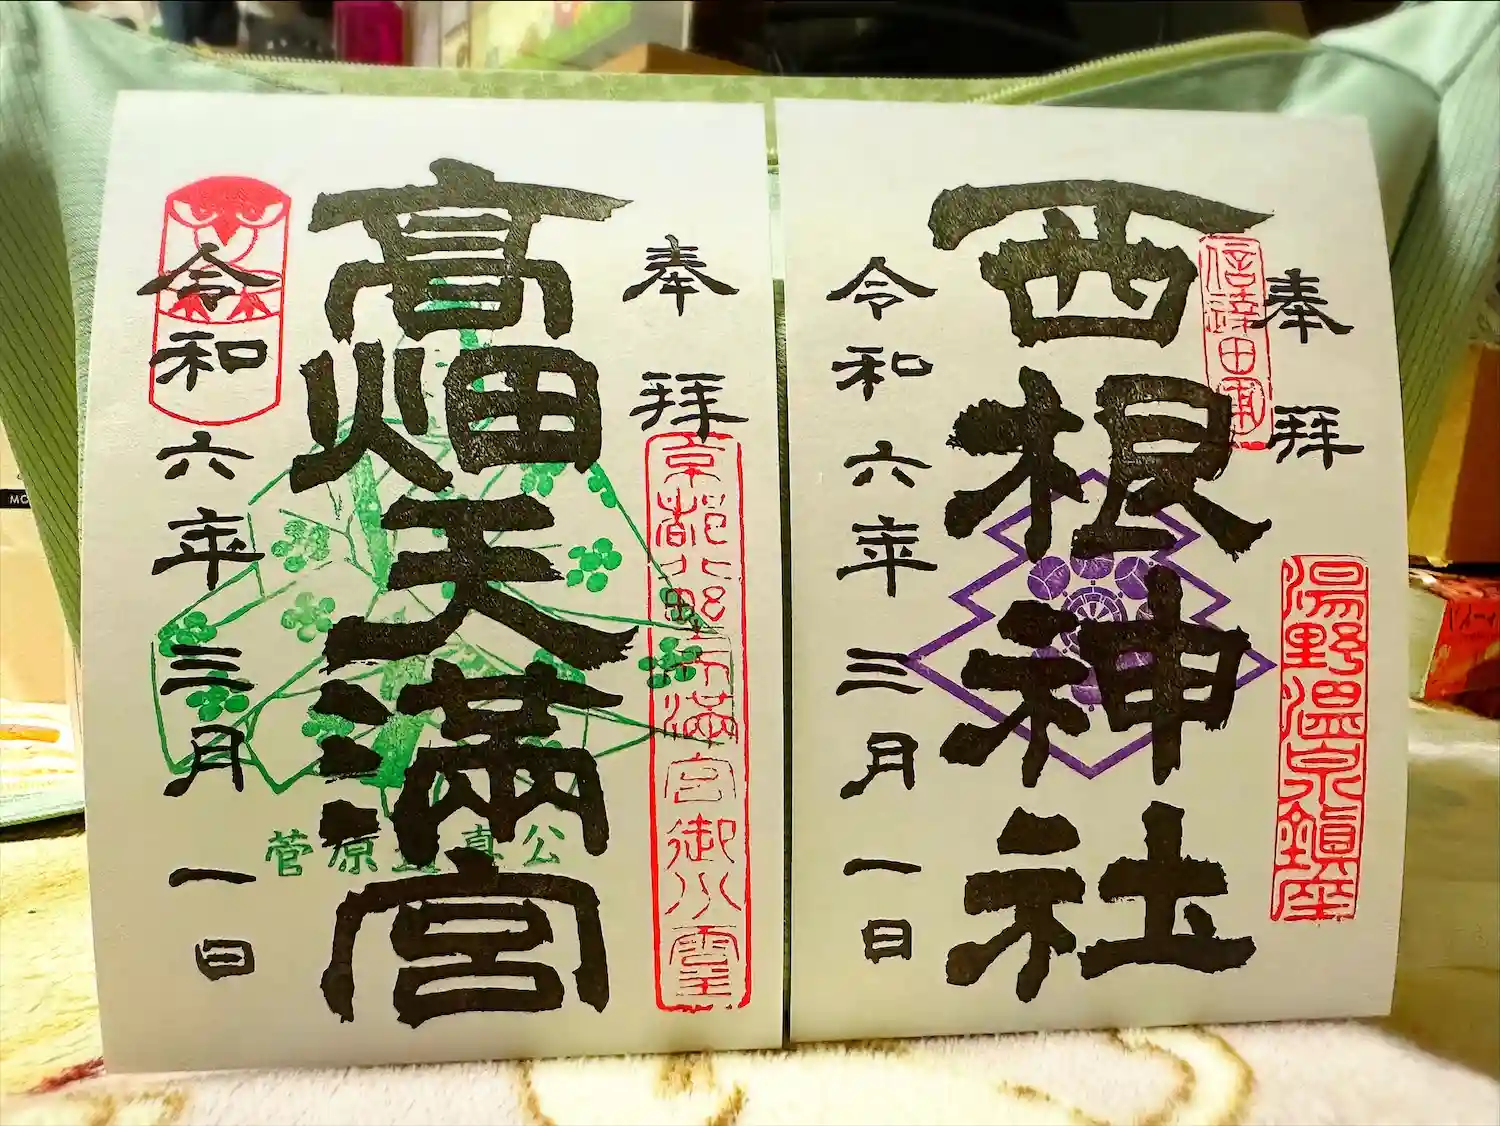 奉拝
信達田東
湯野温泉鎮座
西根神社
令和六年三月一日
奉拝
京都北野天満宮御分霊
高畑天満宮
菅原道真公
令和六年三月一日